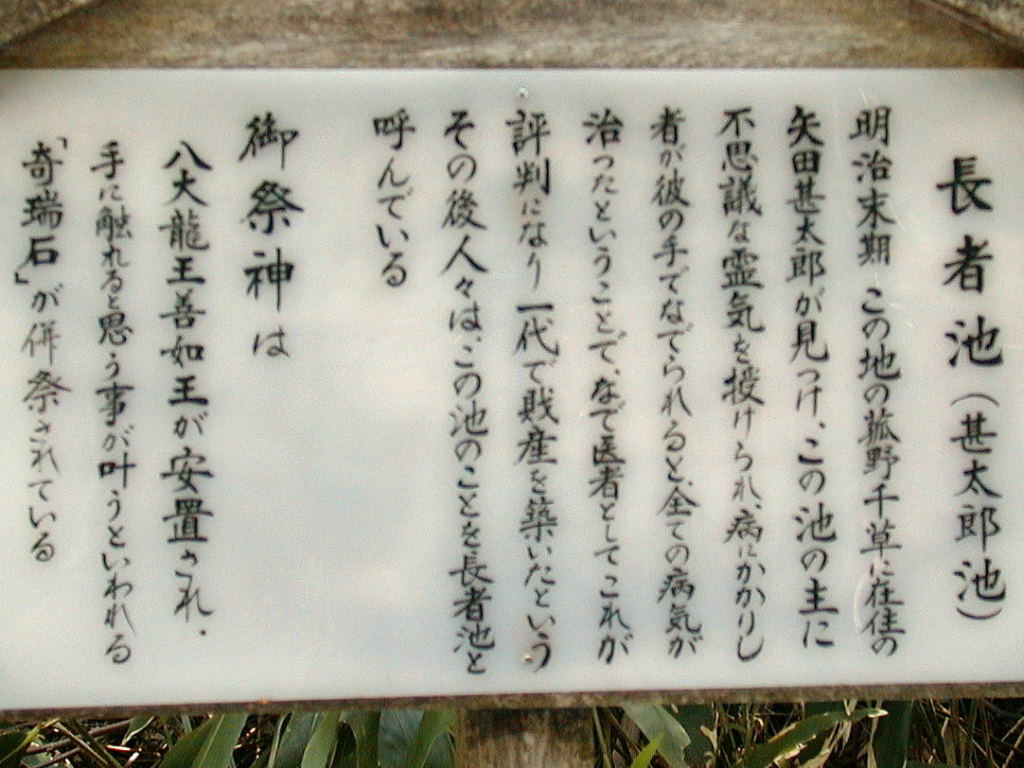 長者池（甚太郎池）
明治末期　この地の菰野千草に在住の
矢田甚太郎が見つけ、この池の主に
不思議な霊気を授けられ、病にかかりし
者が彼の手でなでられると、全ての病気が
治ったということで、なで医者としてこれが
評判になり　一代で財産を築いたという
その後人々は、この池のことを長者池と
呼んでいる
御祭神は
八大龍王善如王が安置され、
手に触れると思う事が叶うといわれる
「奇瑞石」が併祭されている